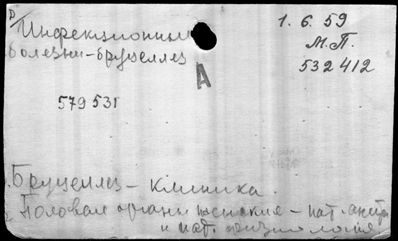 Инфекционные
болезни-бруцеллез
1. 6. 59
М. П.
532412
А
579531
Бруцеллез - клиника.
Половые органы женские - пат. анат.
и пат. физиология.